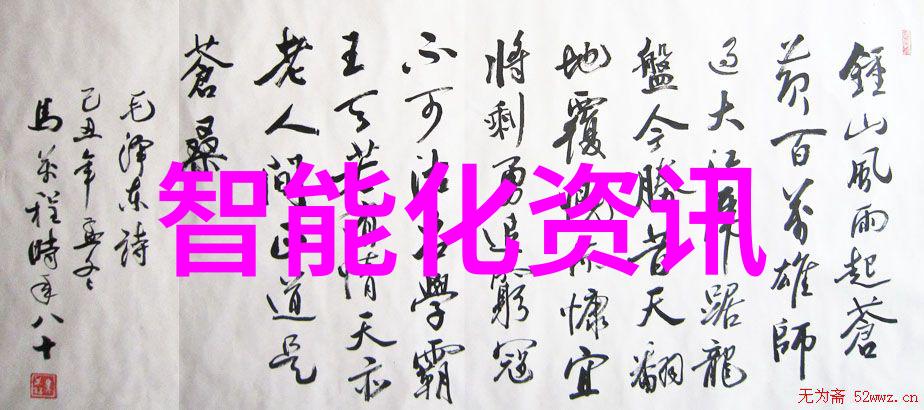 鍾山風雨起蒼
黃百萬雄師
過大江虎踞龍
盤今勝昔天翻
地覆慨而慷宜
將剩勇追窮寇
不可沽名學霸
王天若有情天亦
老人間正道是
蒼桑
毛澤東詩
己丑年孟冬
馬萬程時年八十
智能化资讯
无为斋 52wwz.cn